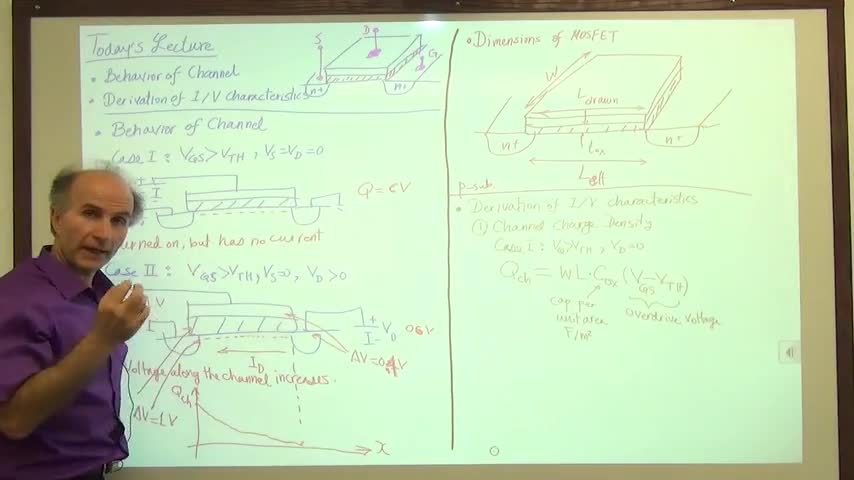 Today's Lecture
• Behavior of Channel
• Derivation of I/V characteristics
S
D
G
n+
n+
• Behavior of Channel
Case I : VGS>VTH , VS=VD=0
Q = CV
turned on, but has no current
Case II : VGS>VTH, VS=0, VD>0
V
VD 0.6V
ID
ΔV=0.4V
Voltage along the channel increases.
Qch
ΔV=1V
x
• Dimensions of MOSFET
W
Ldrawn
n+
tox
n+
Leff
p-sub.
• Derivation of I/V characteristics
① Channel Charge Density
Case I : VG>VTH, VD=0
Qch = WL·Cox (VGS-VTH)
cap per
unit area
F/m²
overdrive voltage